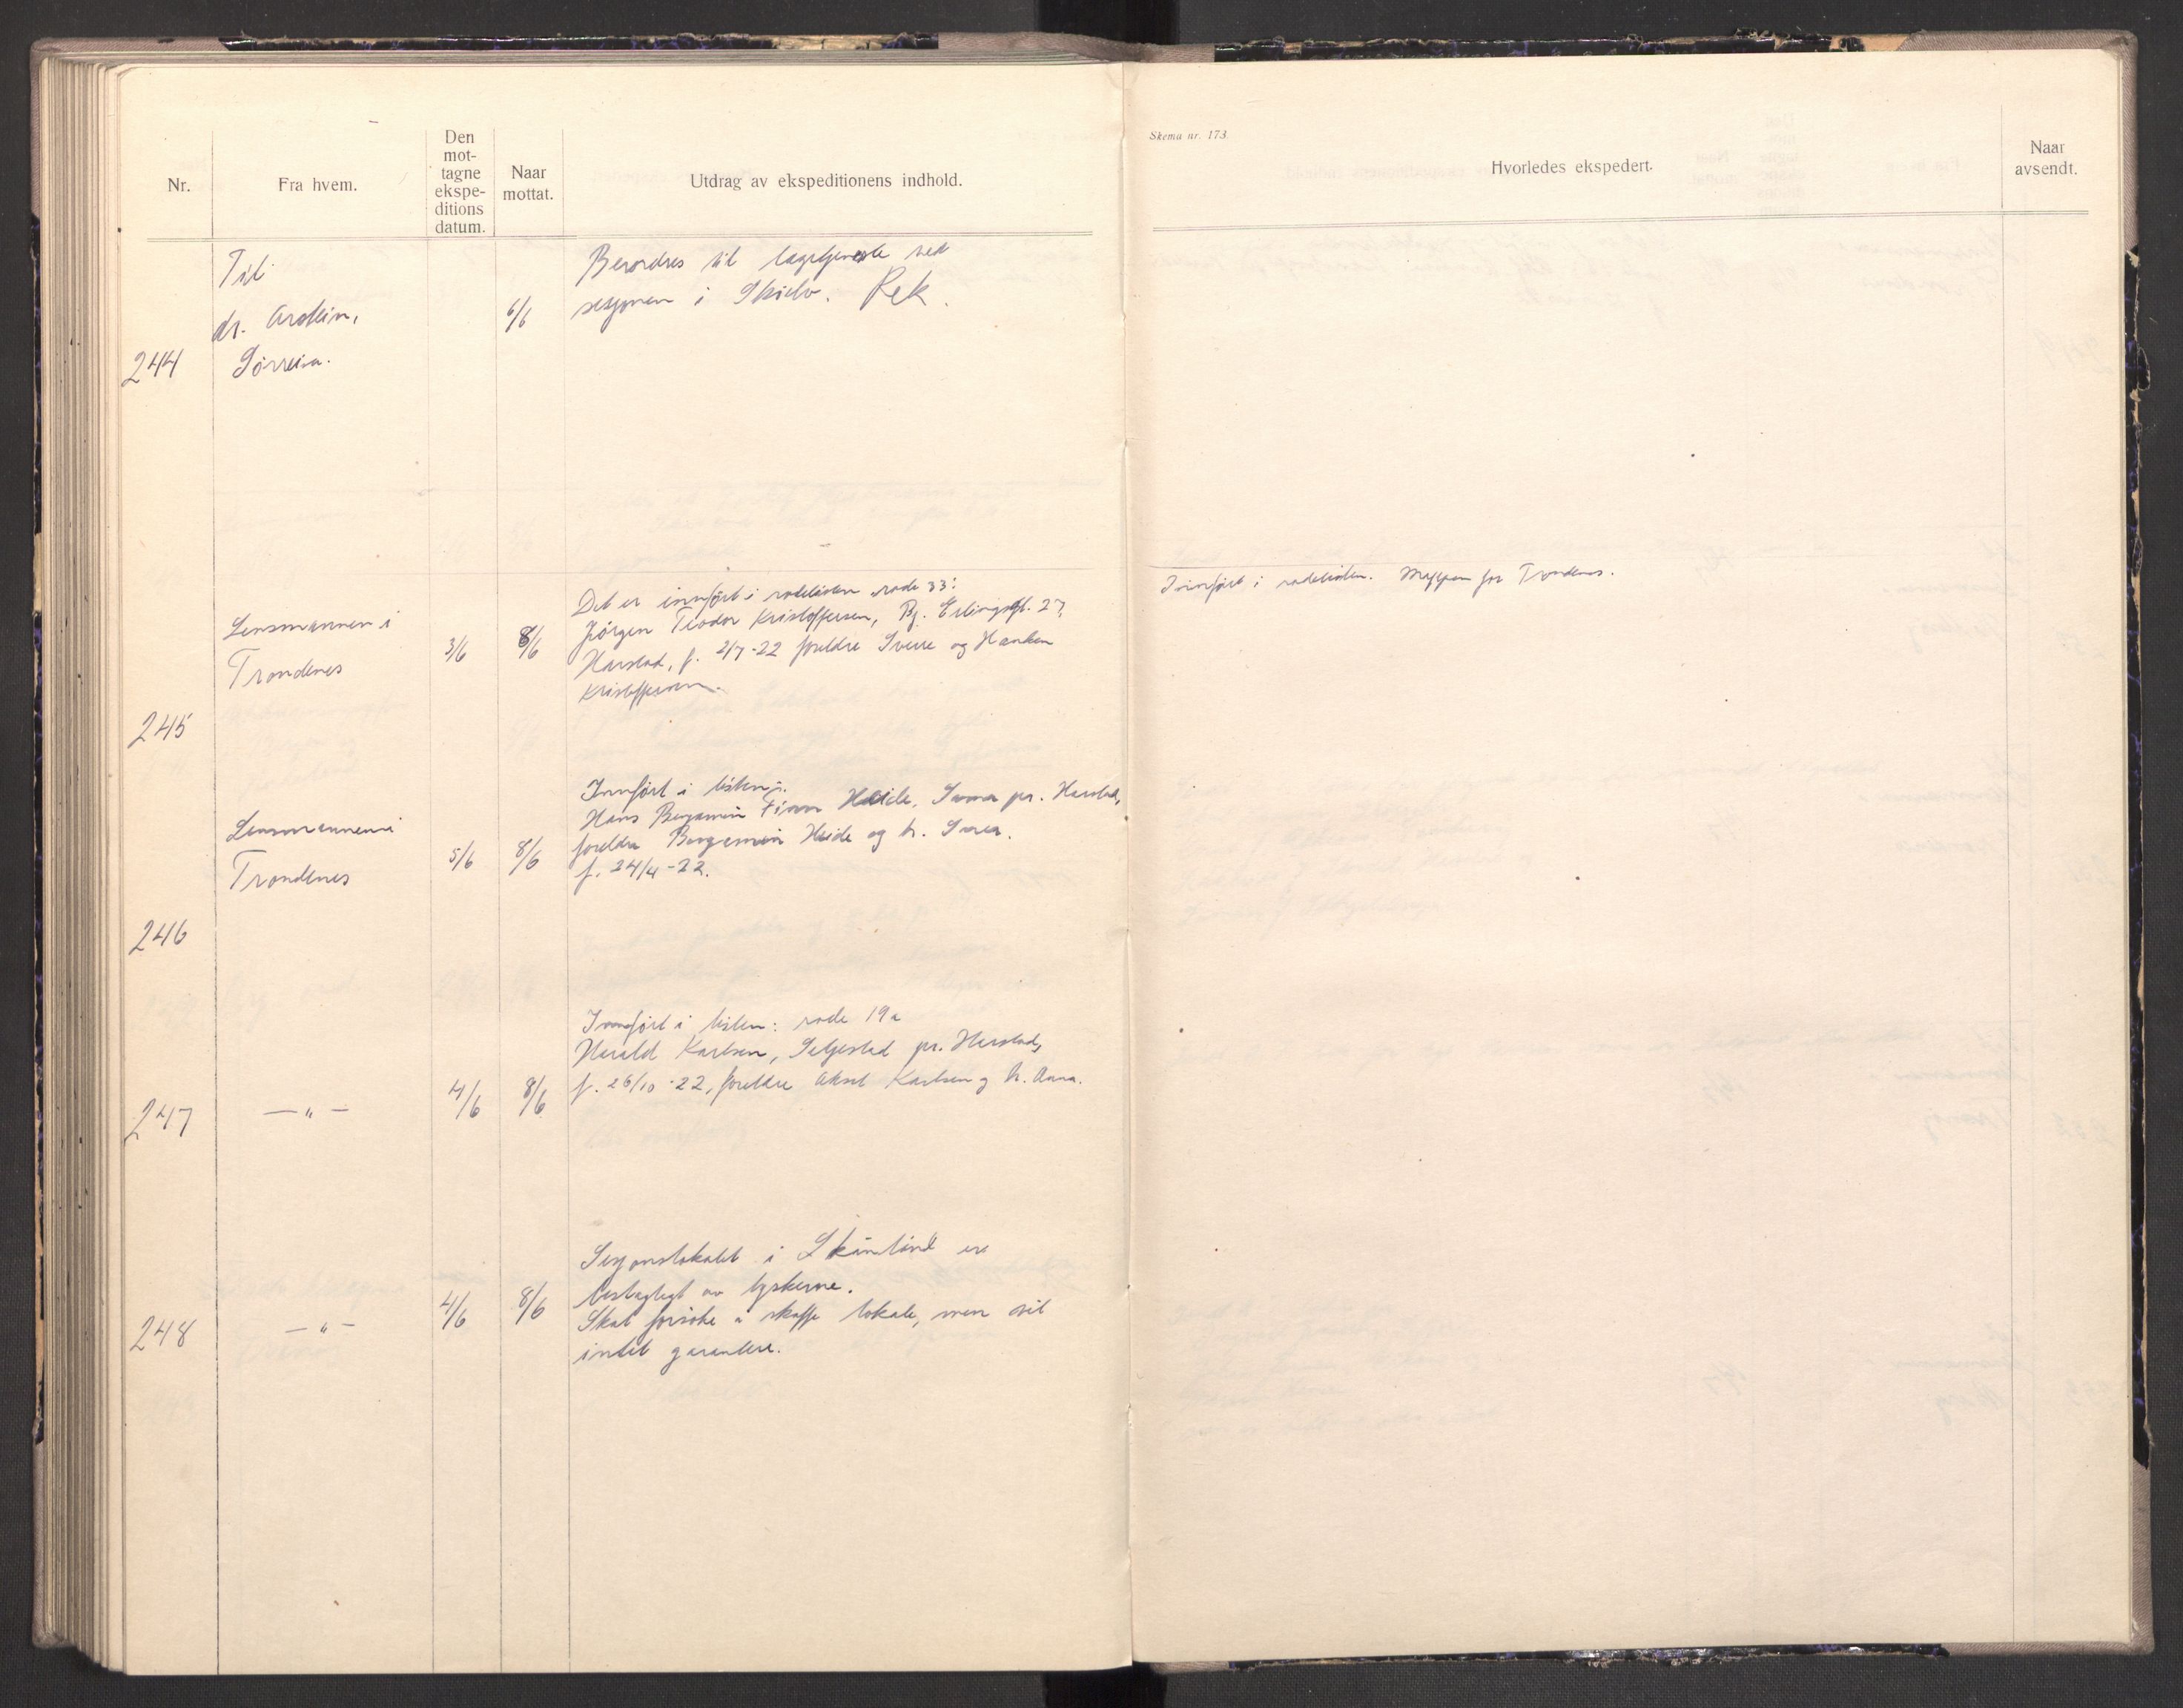 Nr.
Fra hvem.
Den
mot-
tagne
ekspe-
ditions
datum.
Naar
mottat.
Utdrag av ekspeditionens indhold.
Skema nr. 173.
Hvorledes ekspedert.
Naar
avsendt.
244
Til
dr.
Sørreisa.
6/6
Beordres til legetjeneste ved
sesjonen i Rek.
245
Lensmannen i
Trondenes
3/6
8/6
Det er innført i rodelisten rode 33:
Jørgen Teodor Kristoffersen, Bj. Erlingsgt. 27,
Harstad, f. 2/7-22 foreldre Sverre og Hanken
Kristoffersen.
Innført i rodelisten. Mappen for Trondenes.
246
Lensmannen i
Trondenes
5/6
8/6
Innført i listen:
Hans Benjamin Finn Heide, pr. Harstad,
foreldre Benjamin Heide og h.
f. 24/4-22.
247
— " —
4/6
8/6
Innført i listen: rode 19a
Harald Karlsen, Seljestad pr. Harstad,
f. 26/10-22, foreldre Aksel Karlsen og h. Anna.
248
— " —
4/6
8/6
Sesjonslokalet i Skånland er
beslaglagt av tyskerne.
Skal forsøke å skaffe lokale, men vil
intet garantere.